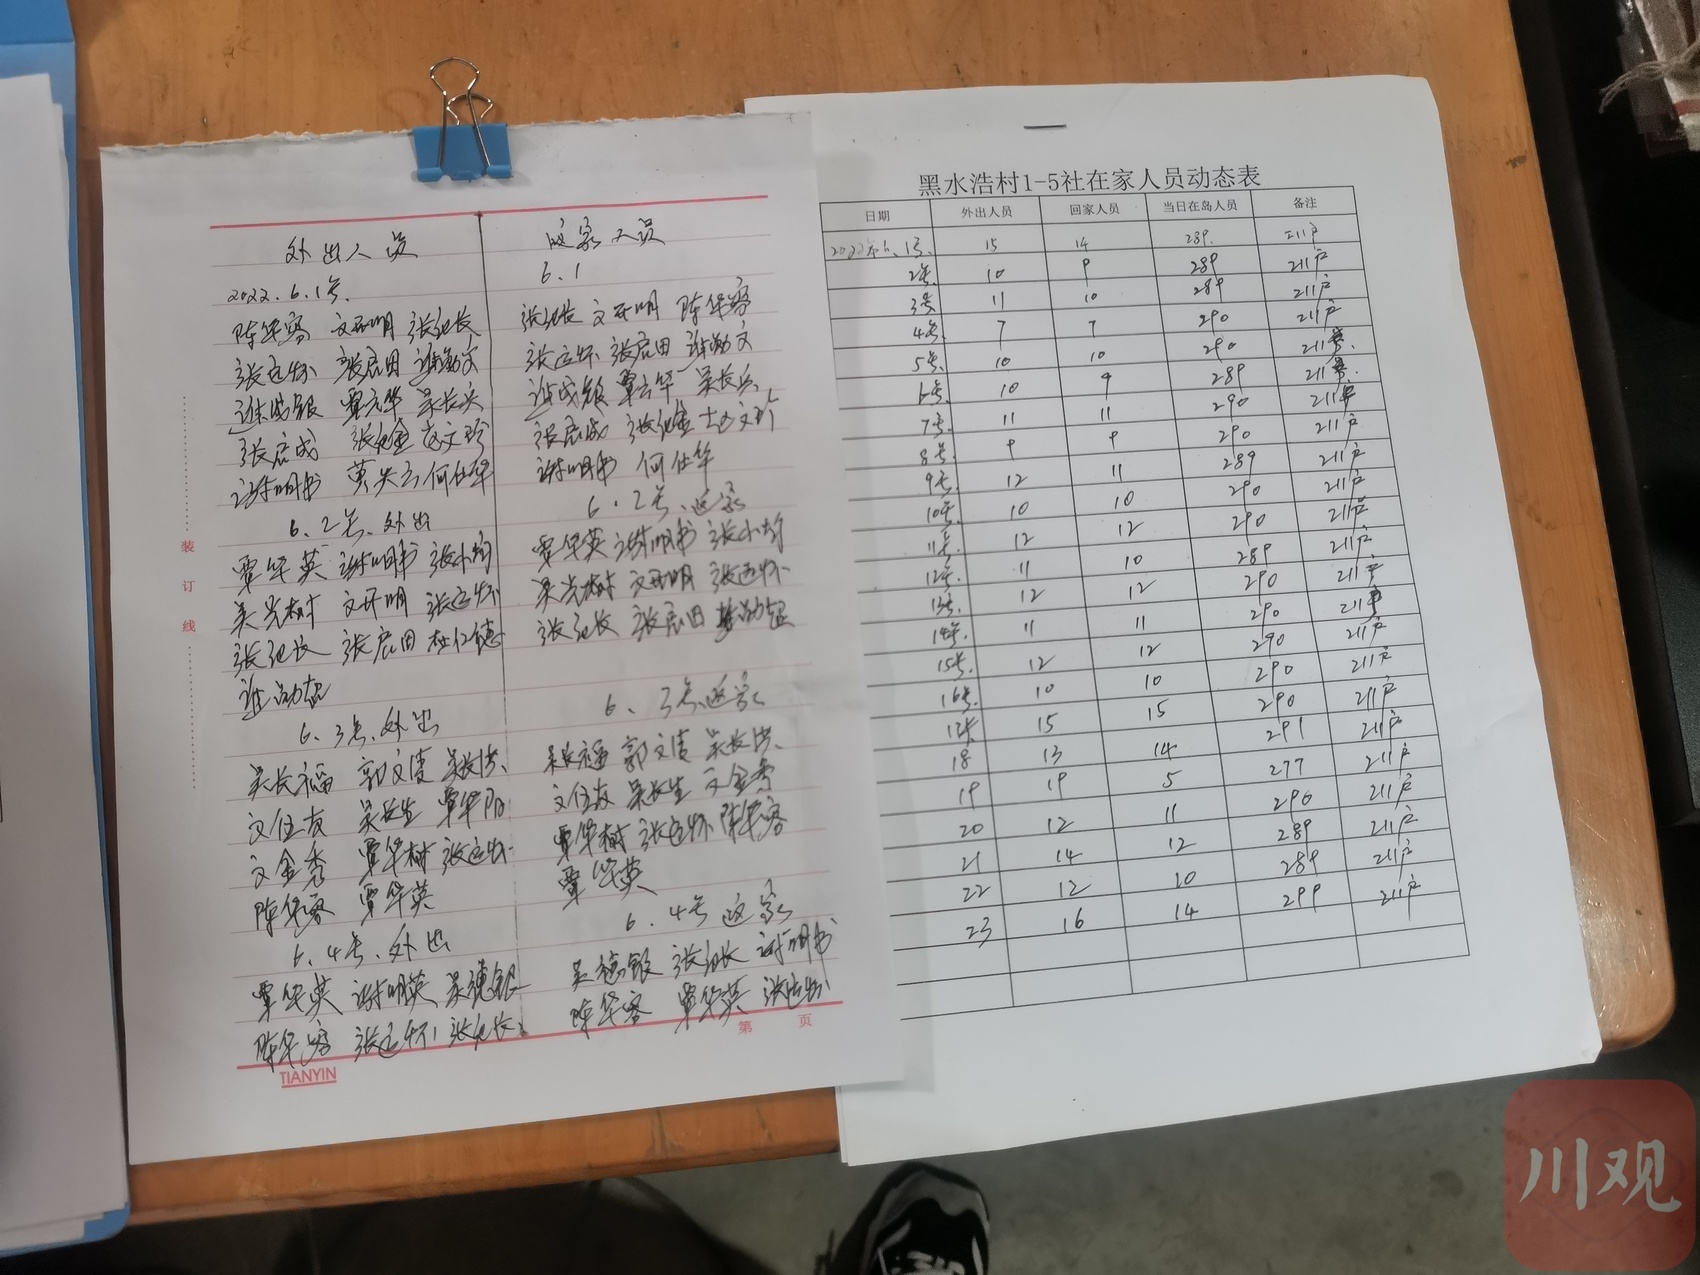 外出人员
2022.6.1号.
陈华容 文开明 张纪长
张远怀 张启田
覃元华 吴长兵
张启成 张纪金 赵文珍
谢明书 何仕华
6.2号.外出
覃华英 谢明书
吴光树 文开明 张远怀
张纪长 张启田 杜仁德
6.3号.外出
吴长福 郭文清 吴长洪.
文仕友 吴长生 覃华阳
文金秀 覃华树 张远怀
陈华容 覃华英
6.4号.外出
覃华英 谢明英 吴德银
陈华容 张远怀 张纪长
返家人员
6.1
张纪长 文开明 陈华容
张远怀 张启田
覃元华 吴长兵
张启成 张纪金 赵文珍
谢明书 何仕华
6.2号.返家
覃华英 谢明书
吴光树 文开明 张远怀
张纪长 张启田
6.3号返家
吴长福 郭文清 吴长洪.
文仕友 吴长生 文金秀
覃华树 张远怀 陈华容
覃华英
6.4号返家
吴德银 张纪长 谢明书
陈华容 覃华英 张远怀
装
订
线
第 页
TIANYIN
黑水浩村1-5社在家人员动态表
日期 外出人员 回家人员 当日在岛人员 备注
2022年6.1号. 15 14 289. 211户
2号. 10 9 289 211户
3号 11 10 289 211户
4号. 7 7 290 211户
5号. 10 10 290 211户.
6号. 10 9 289 211户.
7号. 11 11 290 211户
8号. 9 9 290 211户
9号. 12 11 289 211户
10号. 10 10 290 211户
11号. 12 12 290 211户
12号. 11 10 289 211户
13号. 12 12 290 211户
14号. 11 11 290 211户
15号. 12 12 290 211户
16号. 10 10 290 211户
17号 15 15 290 211户
18 13 14 291 211户
19 19 5 277 211户
20 12 11 290 211户
21 14 12 289 211户
22 12 10 289 211户
23 16 14 299 211户
川观